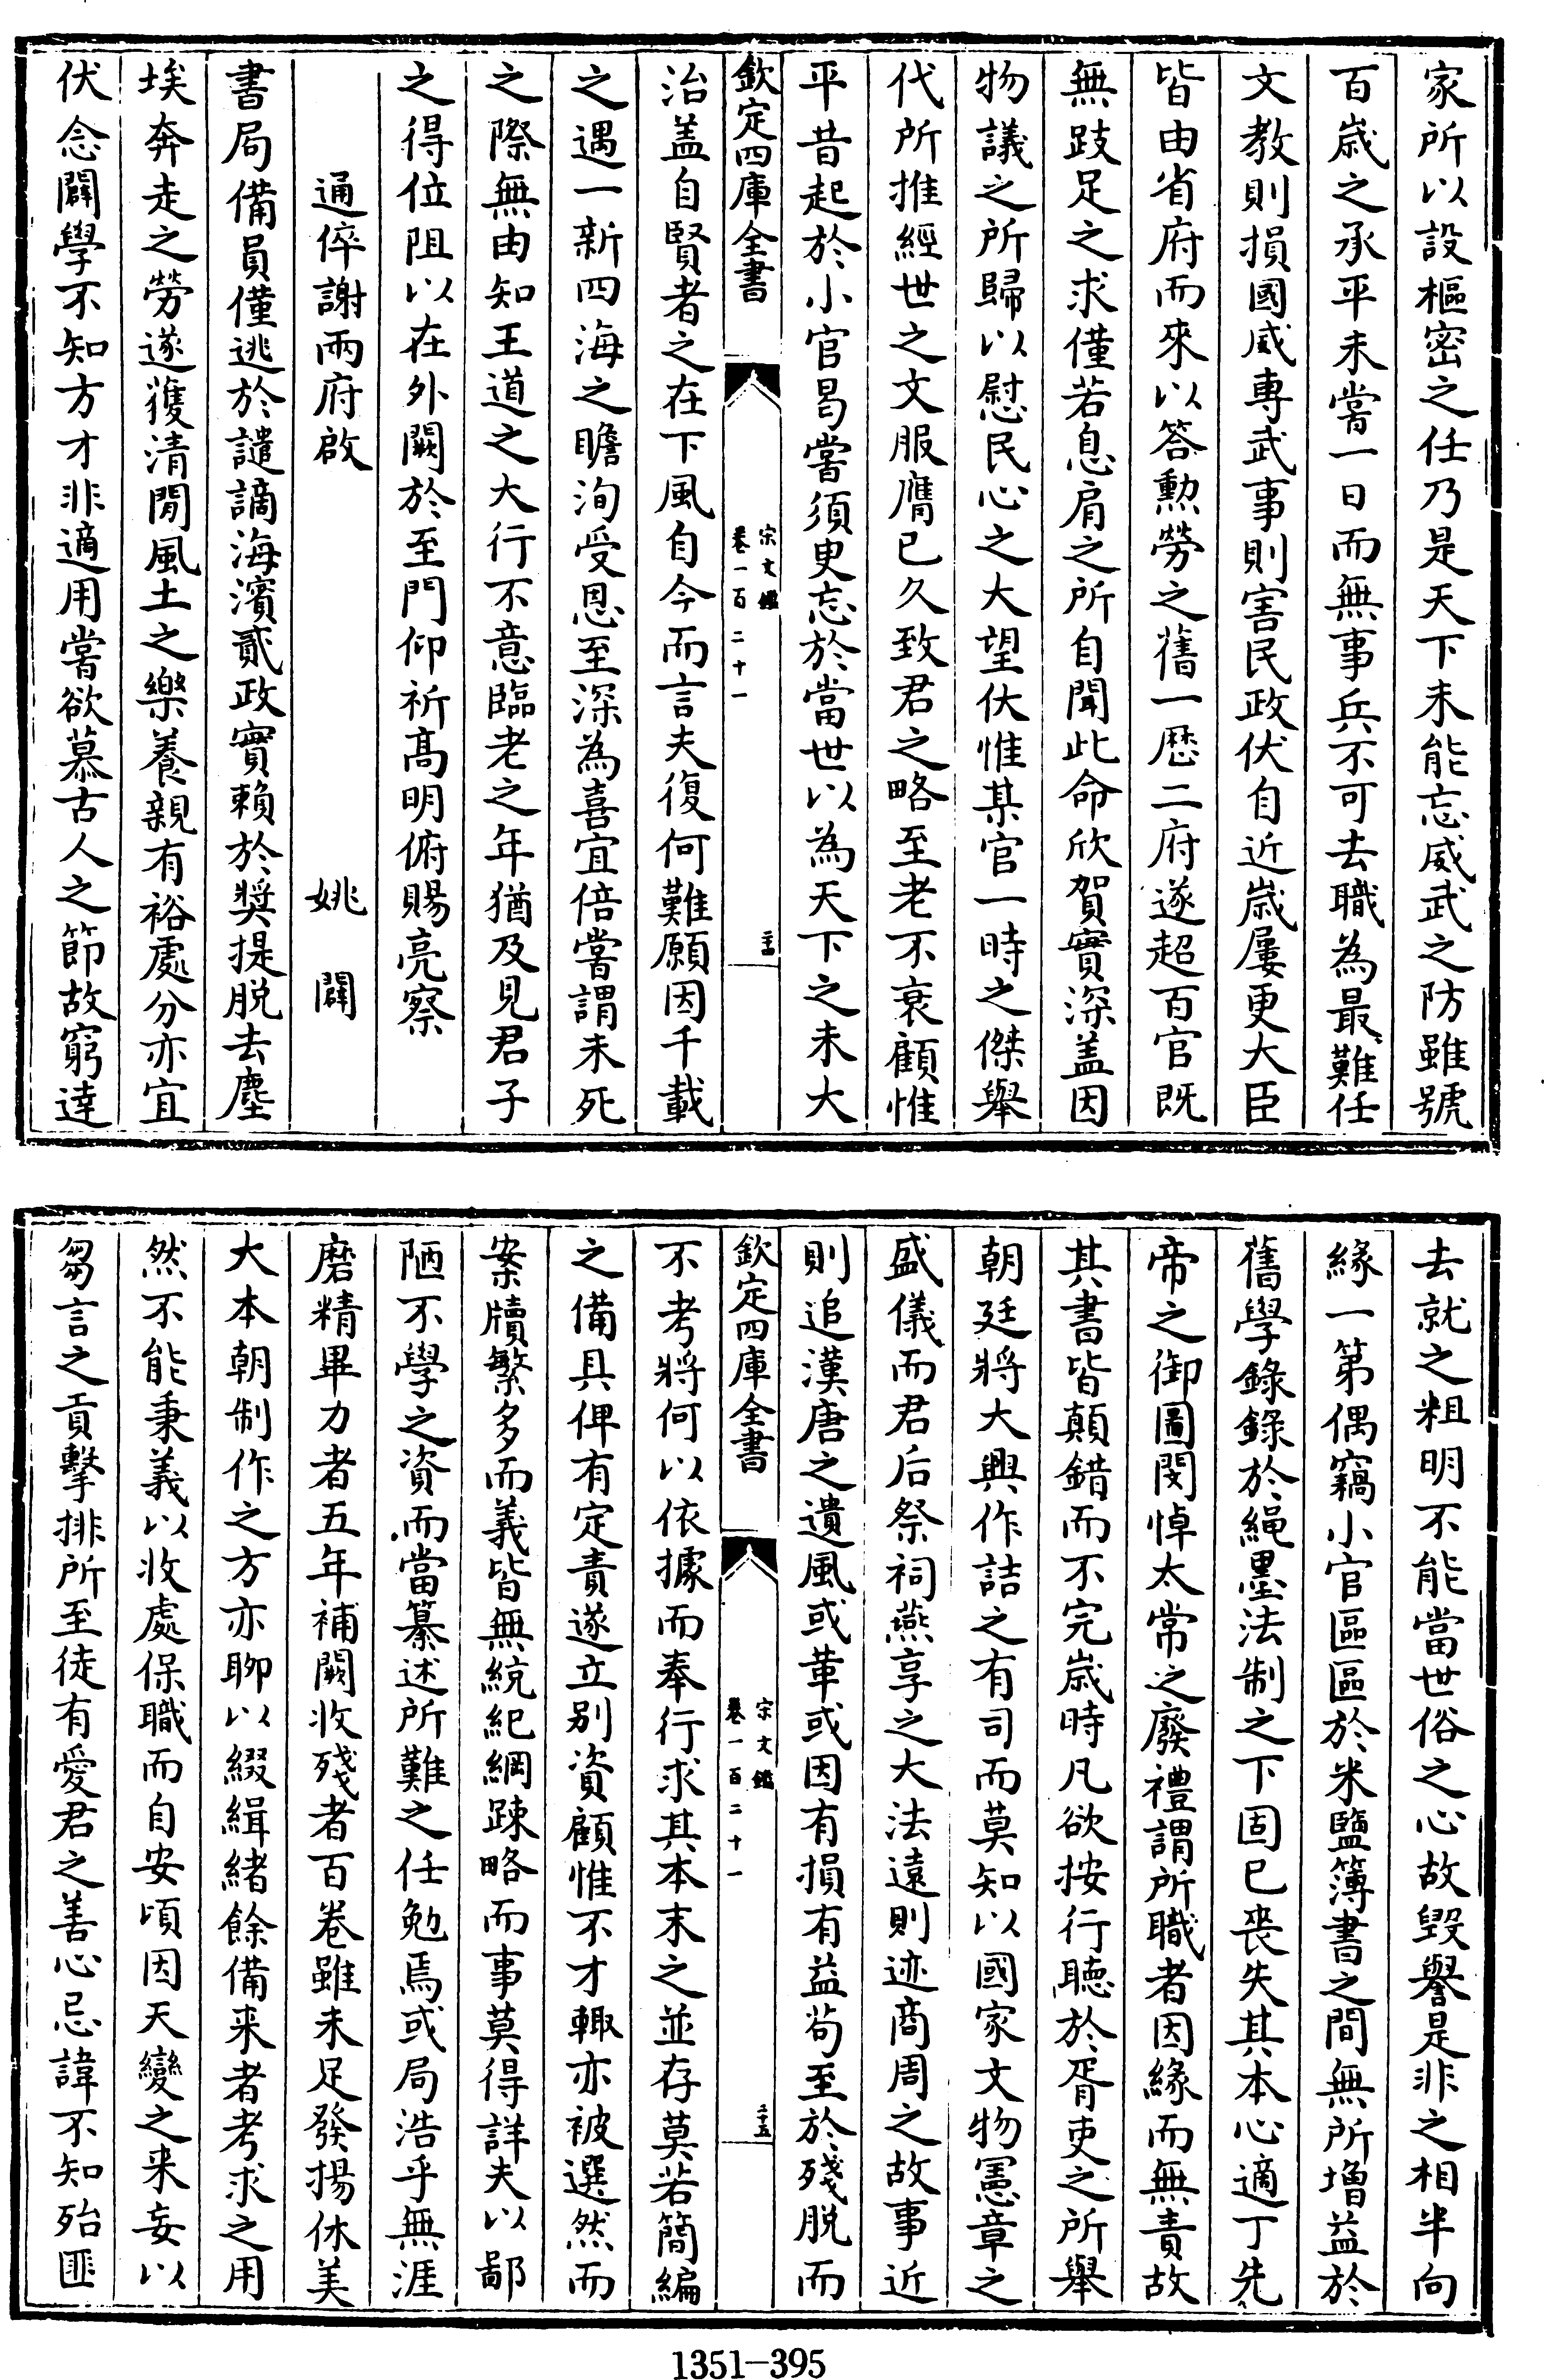 家所以設樞密之任乃是天下未能忘威武之防雖號
百歳之承平未嘗一日而無事兵不可去職為最難任
文教則損國威專武事則害民政伏自近歳屢更大臣
皆由省府而來以答勲勞之舊一歴二府遂超百官既
無跂足之求僅若息肩之所自聞此命欣賀實深盖因
物議之所歸以慰民心之大望伏惟某官一時之傑舉
代所推經世之文服膺已久致君之略至老不衰顧惟
平昔起於小官曷嘗須臾忘於當世以為天下之未大
欽定四庫全書
宋文鑑
卷一百二十一
治盖自賢者之在下風自今而言夫復何難願因千載
之遇一新四海之瞻洵受恩至深為喜宜倍嘗謂未死
之際無由知王道之大行不意臨老之年猶及見君子
之得位阻以在外闕於至門仰祈髙明俯賜亮察
通倅謝兩府啟 姚闢
書局備員僅逃於譴謫海濱貳政實賴於奬提脱去塵
埃奔走之勞遂獲清閒風土之樂養親有裕處分亦宜
伏念闢學不知方才非適用嘗欲慕古人之節故窮達
去就之粗明不能當世俗之心故毀譽是非之相半向
緣一第偶竊小官區區於米鹽簿書之間無所增益於
舊學錄錄於繩墨法制之下固已喪失其本心適丁先
帝之御圖閔悼太常之廢禮謂所職者因緣而無責故
其書皆顛錯而不完歳時凡欲按行聽於胥吏之所舉
朝廷將大興作詰之有司而莫知以國家文物憲章之
盛儀而君后祭祠燕享之大法遠則迹商周之故事近
則追漢唐之遺風或革或因有損有益茍至於殘脱而
欽定四庫全書
宋文鑑
卷一百二十一
二十五
不考將何以依據而奉行求其本末之並存莫若簡編
之備具俾有定責遂立别資顧惟不才輙亦被選然而
案牘繁多而義皆無統紀綱踈略而事莫得詳夫以鄙
陋不學之資而當纂述所難之任勉焉或局浩乎無涯
磨精畢力者五年補闕收殘者百卷雖未足發揚休美
大本朝制作之方亦聊以綴緝緒餘備来者考求之用
然不能秉義以收處保職而自安頃因天變之来妄以
芻言之貢擊排所至徒有愛君之善心忌諱不知殆匪
1351—395